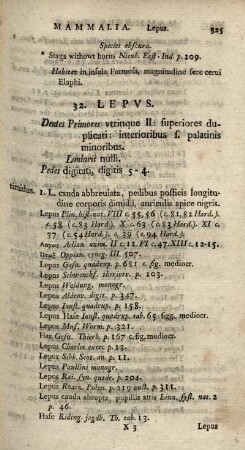 MAMMALIA. Lepus. 325
Species obscura.
* Stags without horns Nieuh. East-Ind. p. 209.
Habitat in insula Formosa, magnitudine fere cerui
Elaphi.
32. LEPVS.
Dentes Primores vtrinque II: superiores du-
plicati: interioribus s. palatinis
minoribus.
Laniarii nulli.
Pedes digitati, digitis 5-4.
timidus. 1. L. cauda abbreuiata, pedibus posticis longitu-
dine corporis dimidii, auriculis apice nigris.
Lepus Plin. hist. nat. VIII c. 55, 56 (c. 81, 82 Hard.).
c. 58 (c. 83 Hard.) X c. 63 (c. 83 Hard.). XI c.
37 (c. 54 Hard.) c. 39 (c. 94 Hard.)
Λαγως Aelian. anim. II c. 12. VI c. 47. XIII c. 12-15.
Oppian. cyneg. III. 507.
Lepus Gesn. quadrup. p. 681 c. fig. mediocr.
Lepus Schwenckf. theriotr. p. 103.
Lepus Waldung. monogr.
Lepus Aldrov. digit. p. 347.
Lepus Ionst. quadrup. p. 158.
Lepus Hase Ionst. quadrup. tab. 65. figg. mediocr.
Lepus Mus. Worm. p. 321.
Has Gesn. Thierb. p. 167 c. fig. mediocr.
Lepus Charlet. exerc. p. 23.
Lepus Sibb. Scot. an. p. 11.
Lepus Paullini monogr.
Lepus Rai. syn. quadr. p. 204.
Lepus Rzacz. Polon. p. 219 auct. p. 311.
Lepus cauda abrupta, pupillis atris Linn. syst. nat. 2
p. 46.
Hase Riding. jagdb. Th. tab. 13.
X 3 Lepus